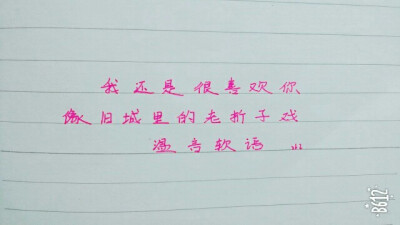 我还是很喜欢你
像旧城里的老折子戏
温言软语 ...
B612